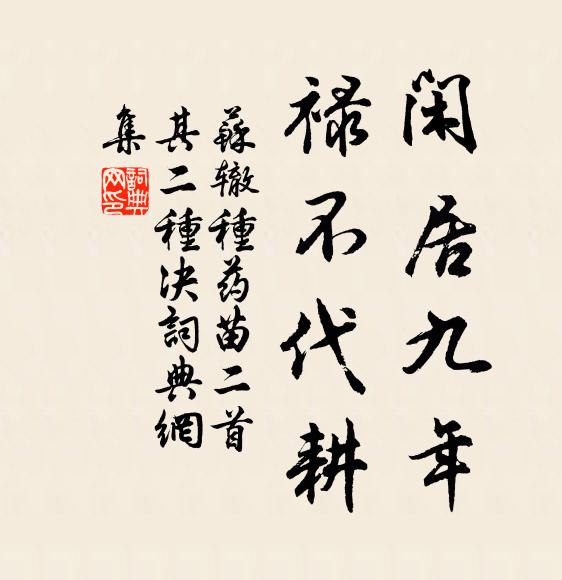 閑居九年
禄不代耕
蘇辙種药苗二首
其二種决詞典網
集
詞典网印